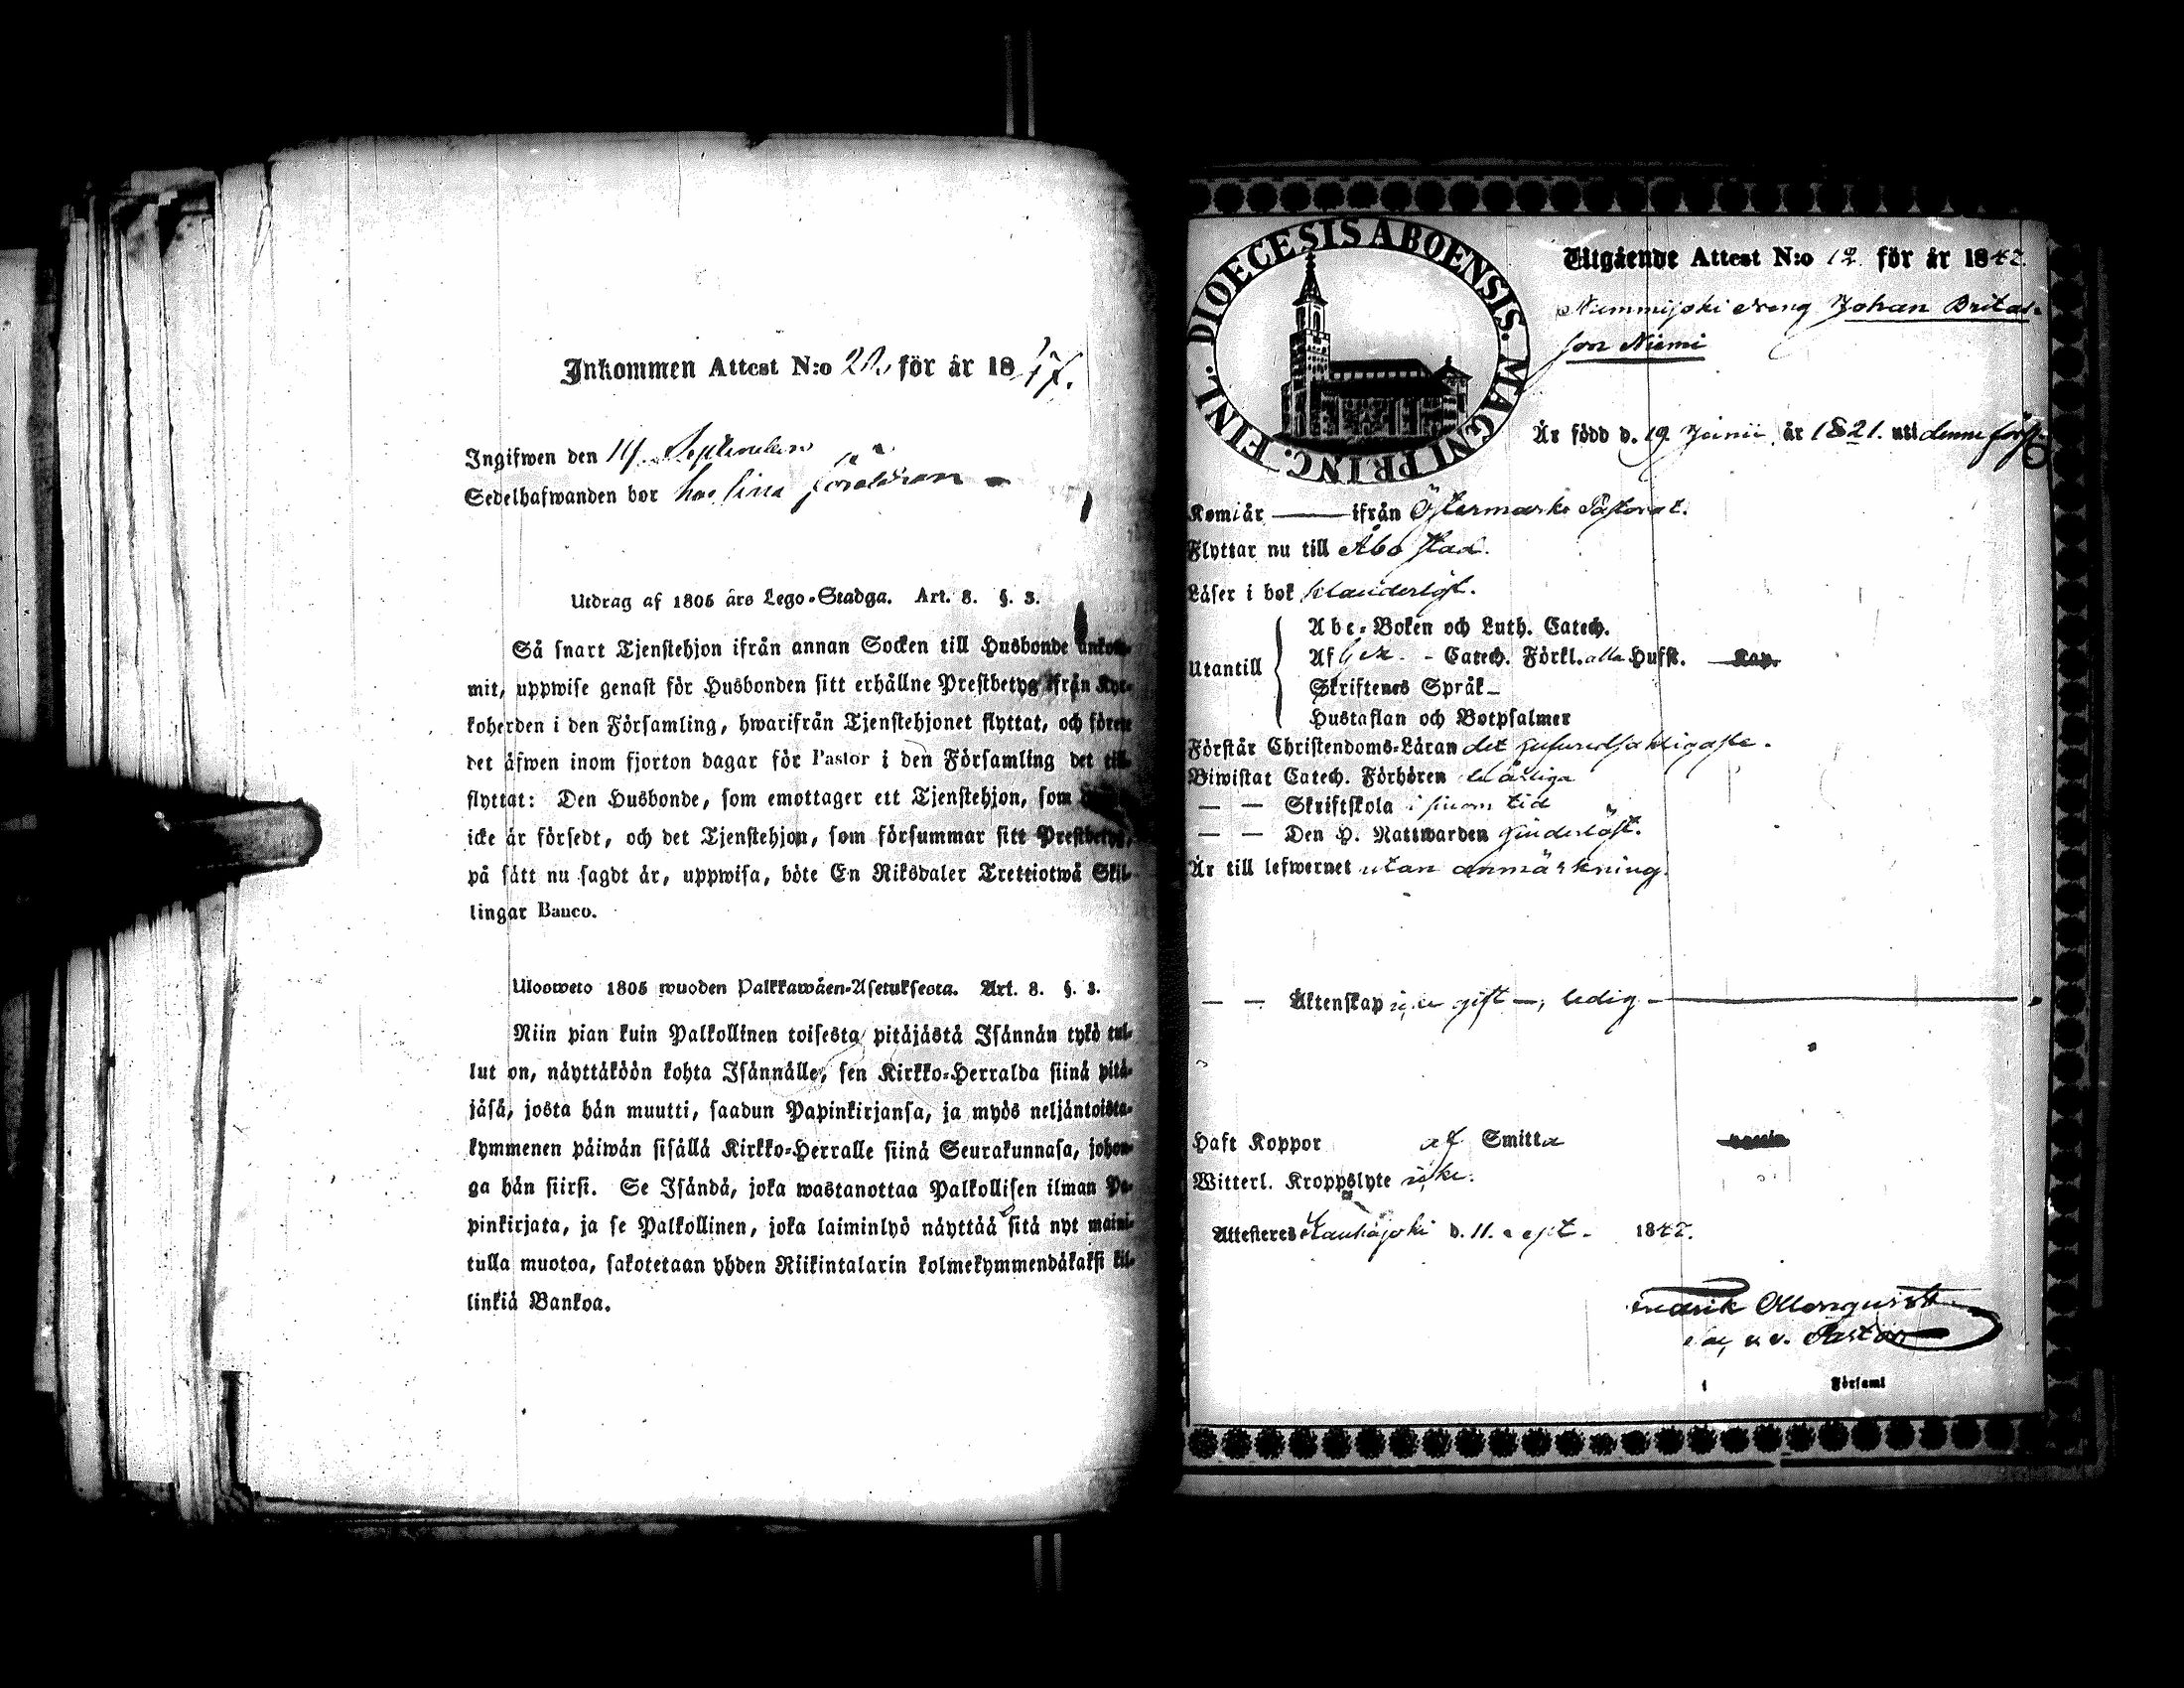 Inkommen Attest N:o 22, för år 1847.
Ingifwen den 14 September
Sedelhafwanden bor hos sina föräldran
Utdrag af 1805 års Lego-Stadga. Art. 8. §. 3.
Så snart Tjenstehjon ifrån annan Socken till Husbonde ankom-
mit, uppwise genast för Husbonden sitt erhållne Prestbetyg ifrån Kyr-
koherden i den Församling, hwarifrån Tjenstehjonet flyttat, och förete
det äfwen inom fjorton dagar för Pastor i den Församling det till-
flyttat: Den Husbonde, som emottager ett Tjenstehjon, som
icke är försedt, och det Tjenstehjon, som försummar sitt Prestbetyg,
på sätt nu sagdt är, uppwisa, böte En Riksdaler Trettiotwå Skil-
lingar Banco.
Ulosweto 1805 wuoden Palkkawäen-Asetuksesta. Art. 8. §. 3.
Niin pian kuin Palkollinen toisesta pitäjästä Isännän tykö tul-
lut on, näyttäköön kohta Isännälle, sen Kirkko-Herralda siinä pitä-
jäsä, josta hän muutti, saadun Papinkirjansa, ja myös neljäntoista-
kymmenen päiwän sisällä Kirkko-Herralle siinä Seurakunnasa, johon-
ga hän siirsi. Se Isändä, joka wastanottaa Palkollisen ilman Pa-
pinkirjata, ja se Palkollinen, joka laiminlyö näyttää sitä nyt maini-
tulla muotoa, sakotetaan yhden Riikintalarin kolmekymmendäkaksi kil-
linkiä Bankoa.
DIOECESIS ABOENSIS. MAGNI PRINC. FINL.
Utgående Attest N:o 12 för år 1847.
Nummijoki dreng Johan Britas-
son Niemi
Är född d. 19 Junii år 1821. uti denne förs
Kom i år — ifrån Östermarks Pastorat.
Flyttar nu till Åbo stad.
Läser i bok klanderlöst.
Utantill
Abc-Boken och Luth. Catech.
Af - Catech. Förkl. alla Hufst. Kap.
Skriftenes Språk —
Hustaflan och Botpsalmer
Förstår Christendoms-Läran det hufvudsakligaste.
Biwistat Catech. Förhören årliga
— — Skriftskola i sinom tid
— — Den H. Nattwarden hinderlöst.
Är till lefwernet utan anmärkning.
— — Äktenskap icke gift —, ledig —
Haft Koppor af Smitta
Witterl. Kroppslyte icke.
Attesteres Kauhajoki d. 11. Sept. 1847.
Fredrik
v. Pastor
Församl